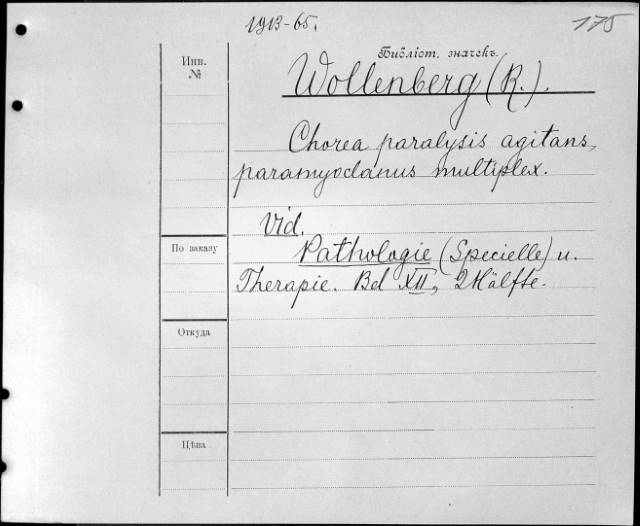 1913-65.
175
Библіот. значекъ.
Инв.
№
Wollenberg (R.).
Chorea paralysis agitans,
paramyoclanus multiplex.
Vid.
По заказу
Pathologie (Specielle) u.
Therapie. Bd XII, 2 Hälfte.
Откуда
Цѣна